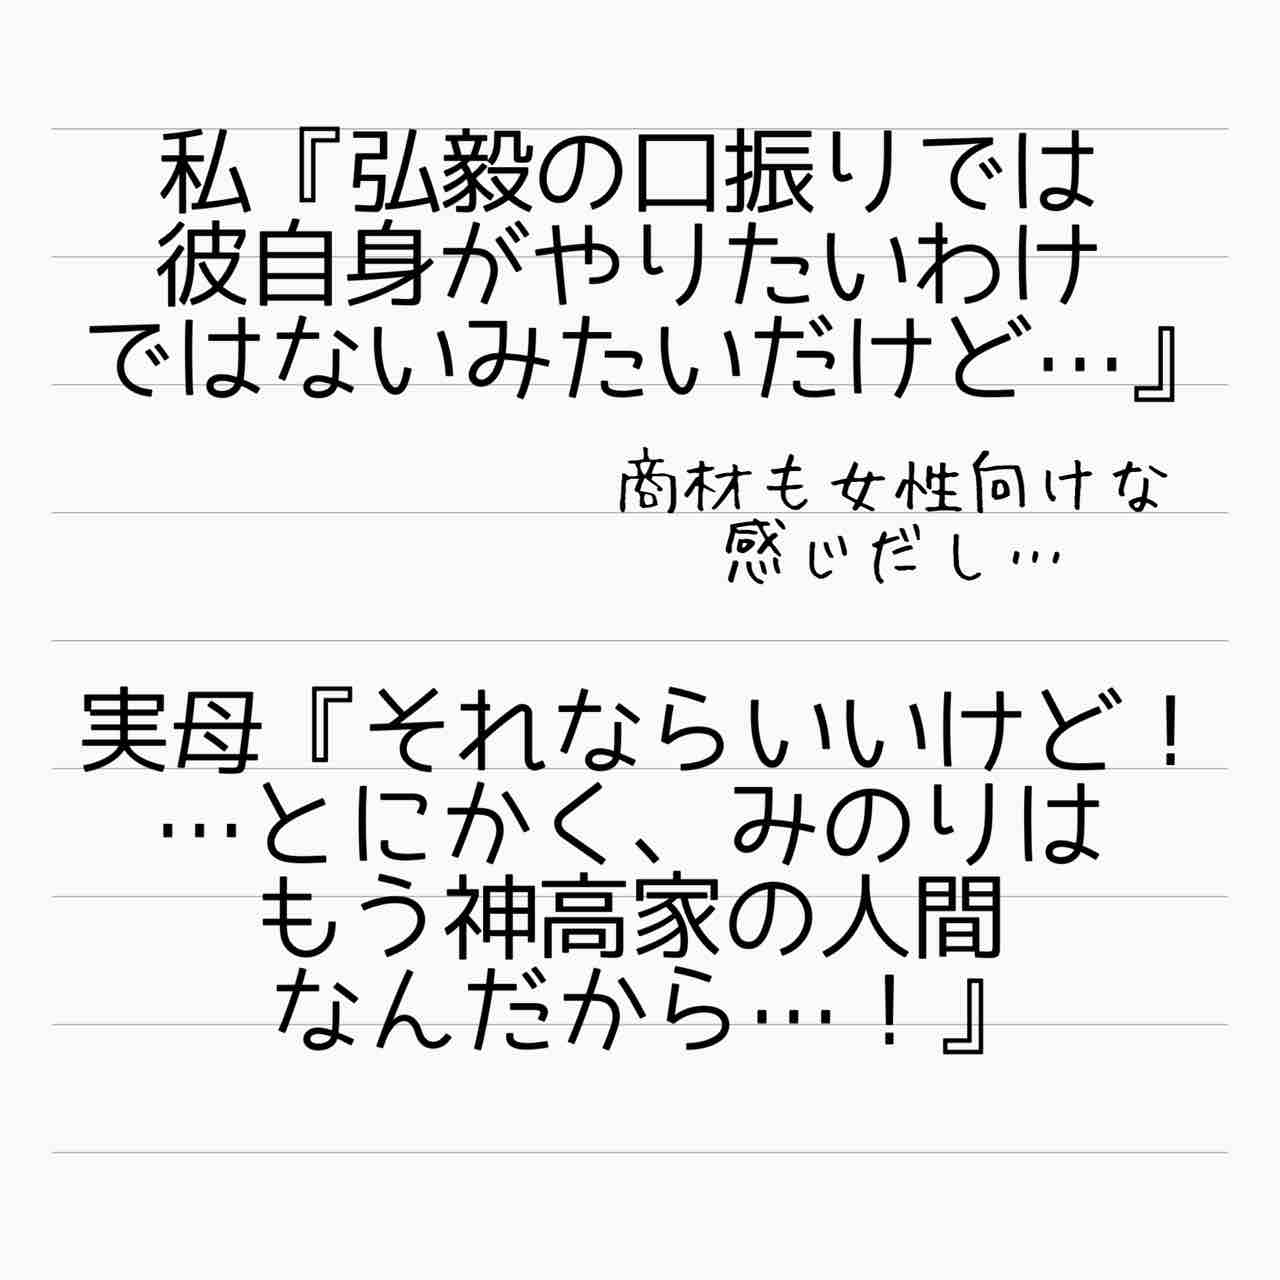 私『弘毅の口振りでは
彼自身がやりたいわけ
ではないみたいだけど…』
商材も女性向けな
感じだし…
実母『それならいいけど！
…とにかく、みのりは
もう神高家の人間
なんだから…！』